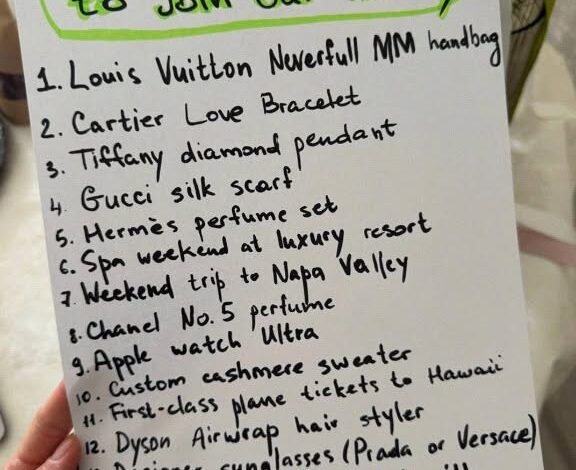 to Join our
1. Louis Vuitton Neverfull MM handbag
2. Cartier Love Bracelet
3. Tiffany diamond pendant
4. Gucci silk scarf
5. Hermès perfume set
6. Spa weekend at luxury resort
7. Weekend trip to Napa Valley
8. Chanel No. 5 perfume
9. Apple watch Ultra
10. Custom cashmere sweater
11. First-class plane tickets to Hawaii
12. Dyson Airwrap hair styler
Designer sunglasses (Prada or Versace)